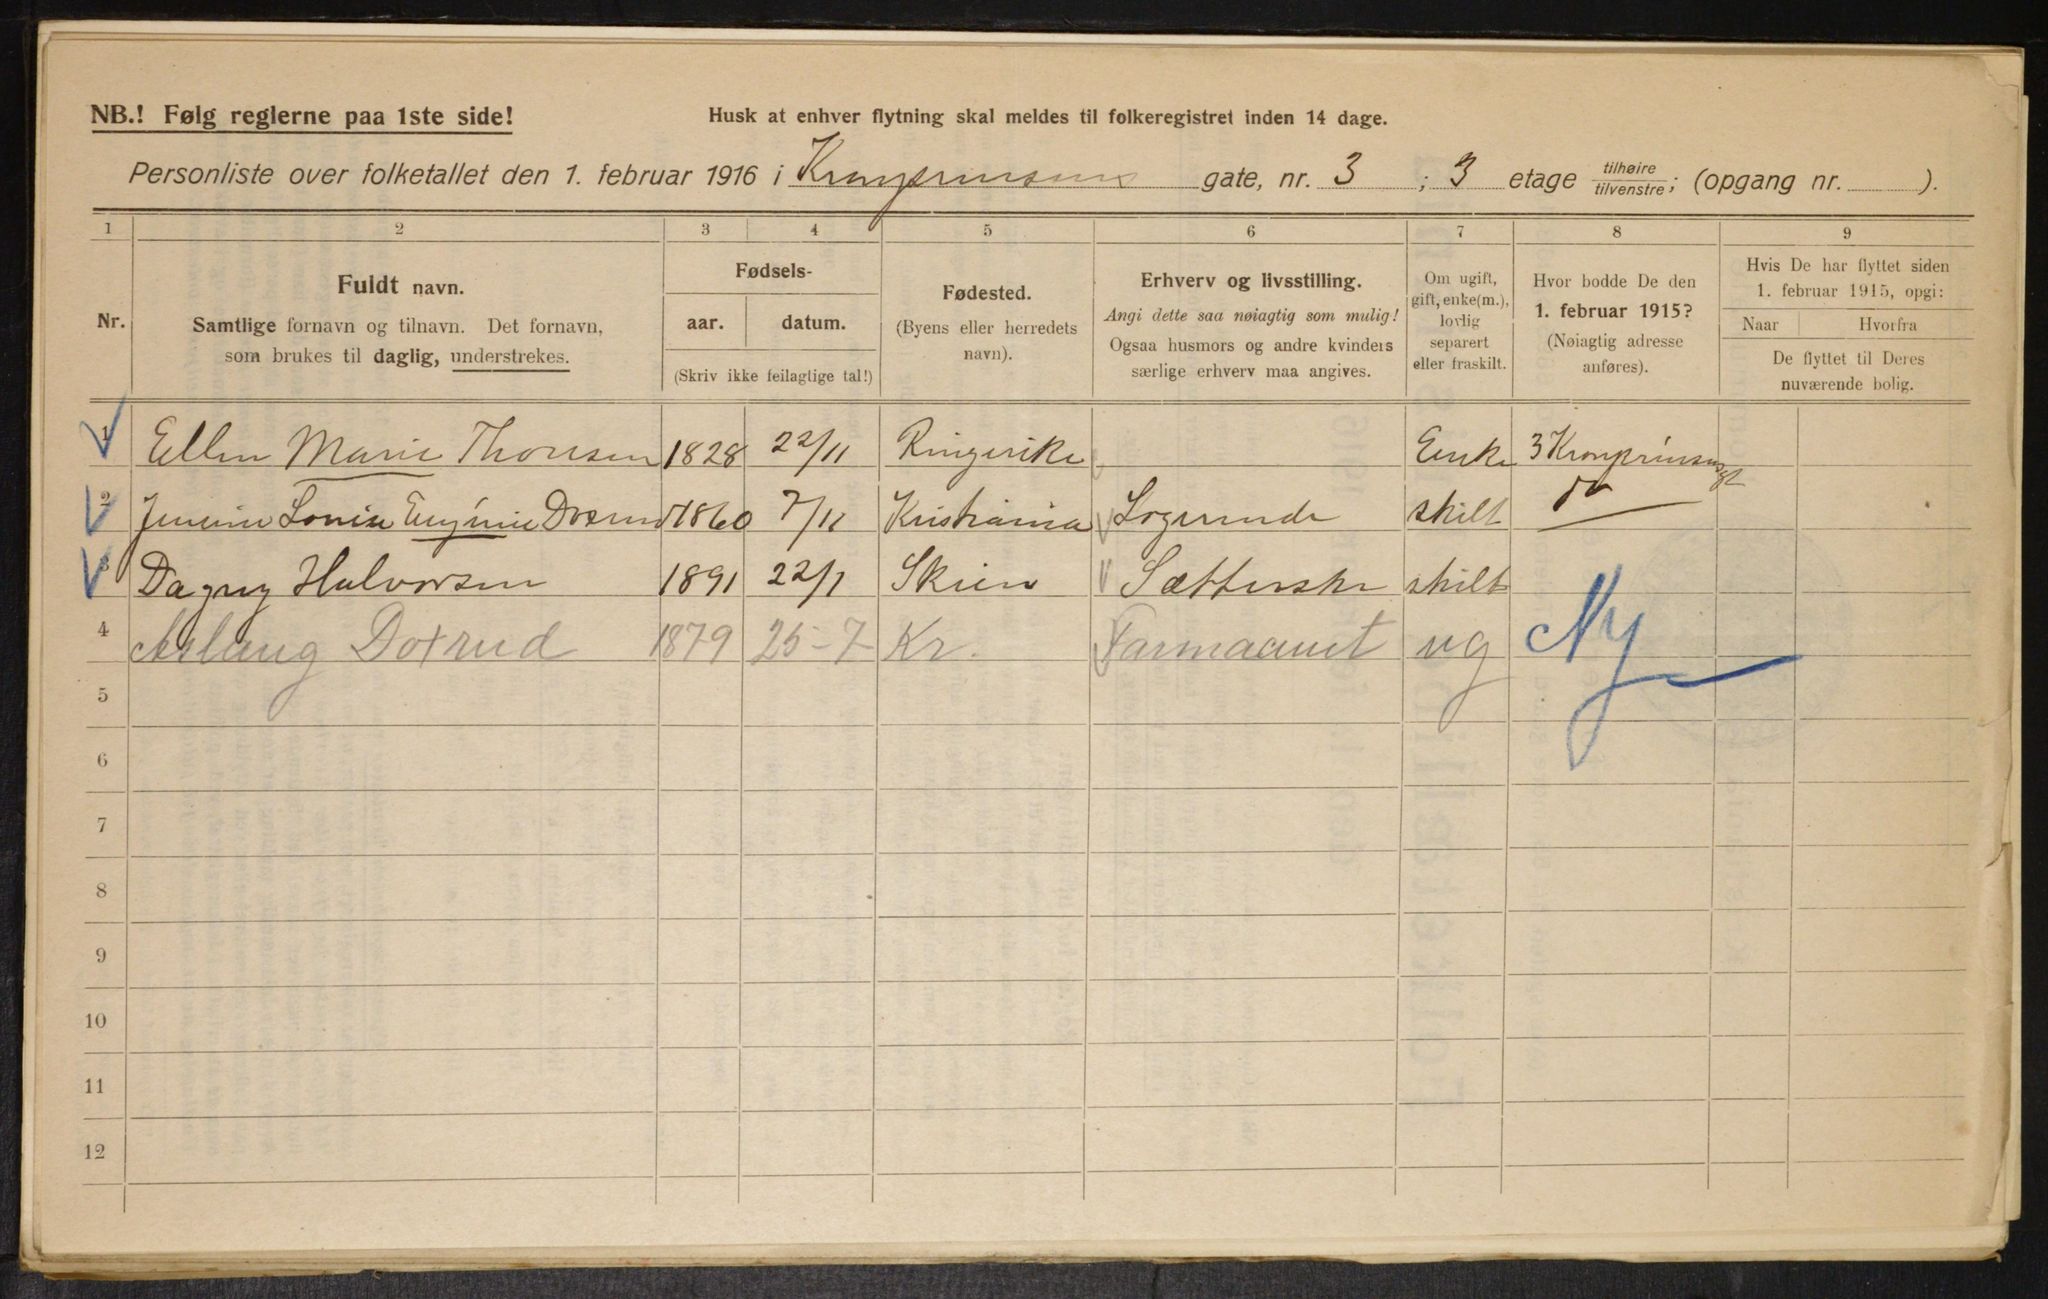 NB.! Følg reglerne paa 1ste side!
Husk at enhver flytning skal meldes til folkeregistret inden 14 dage.
Personliste over folketallet den 1. februar 1916 i Kronprinsens gate, nr. 3 ; 3 etage tilhøire tilvenstre; (opgang nr. ).
1 2 3 4 5 6 7 8 9
Nr.
Fuldt navn.
Samtlige fornavn og tilnavn. Det fornavn,
som brukes til daglig, understrekes.
Fødsels-
aar. datum.
(Skriv ikke feilagtige tal!)
Fødested.
(Byens eller herredets
navn).
Erhverv og livsstilling.
Angi dette saa nøiagtig som mulig!
Ogsaa husmors og andre kvinders
særlige erhverv maa angives.
Om ugift,
gift, enke(m.),
lovlig
separert
eller fraskilt.
Hvor bodde De den
1. februar 1915?
(Nøiagtig adresse
anføres).
Hvis De har flyttet siden
1. februar 1915, opgi:
Naar Hvorfra
De flyttet til Deres
nuværende bolig.
1 Ellen Marie Thoresen 1828 22/11 Ringerike Enke 3 Kronprinsensgt
2 Louise Eugenie Doxrud 1860 7/11 Kristiania Logerende skilt do
3 Dagny Halvorsen 1891 22/1 Skien Sætterske skilt
4 Aslaug Doxrud 1879 25-7 Kr. ug Ny
5
6
7
8
9
10
11
12